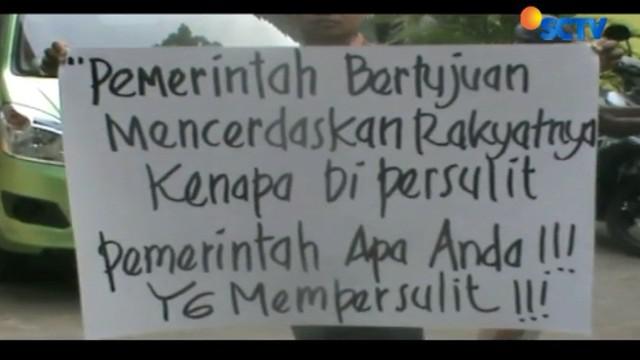 SCTV
"Pemerintah Bertujuan
Mencerdaskan Rakyatnya
Kenapa Di persulit
Pemerintah Apa Anda !!!
YG Mempersulit !!!